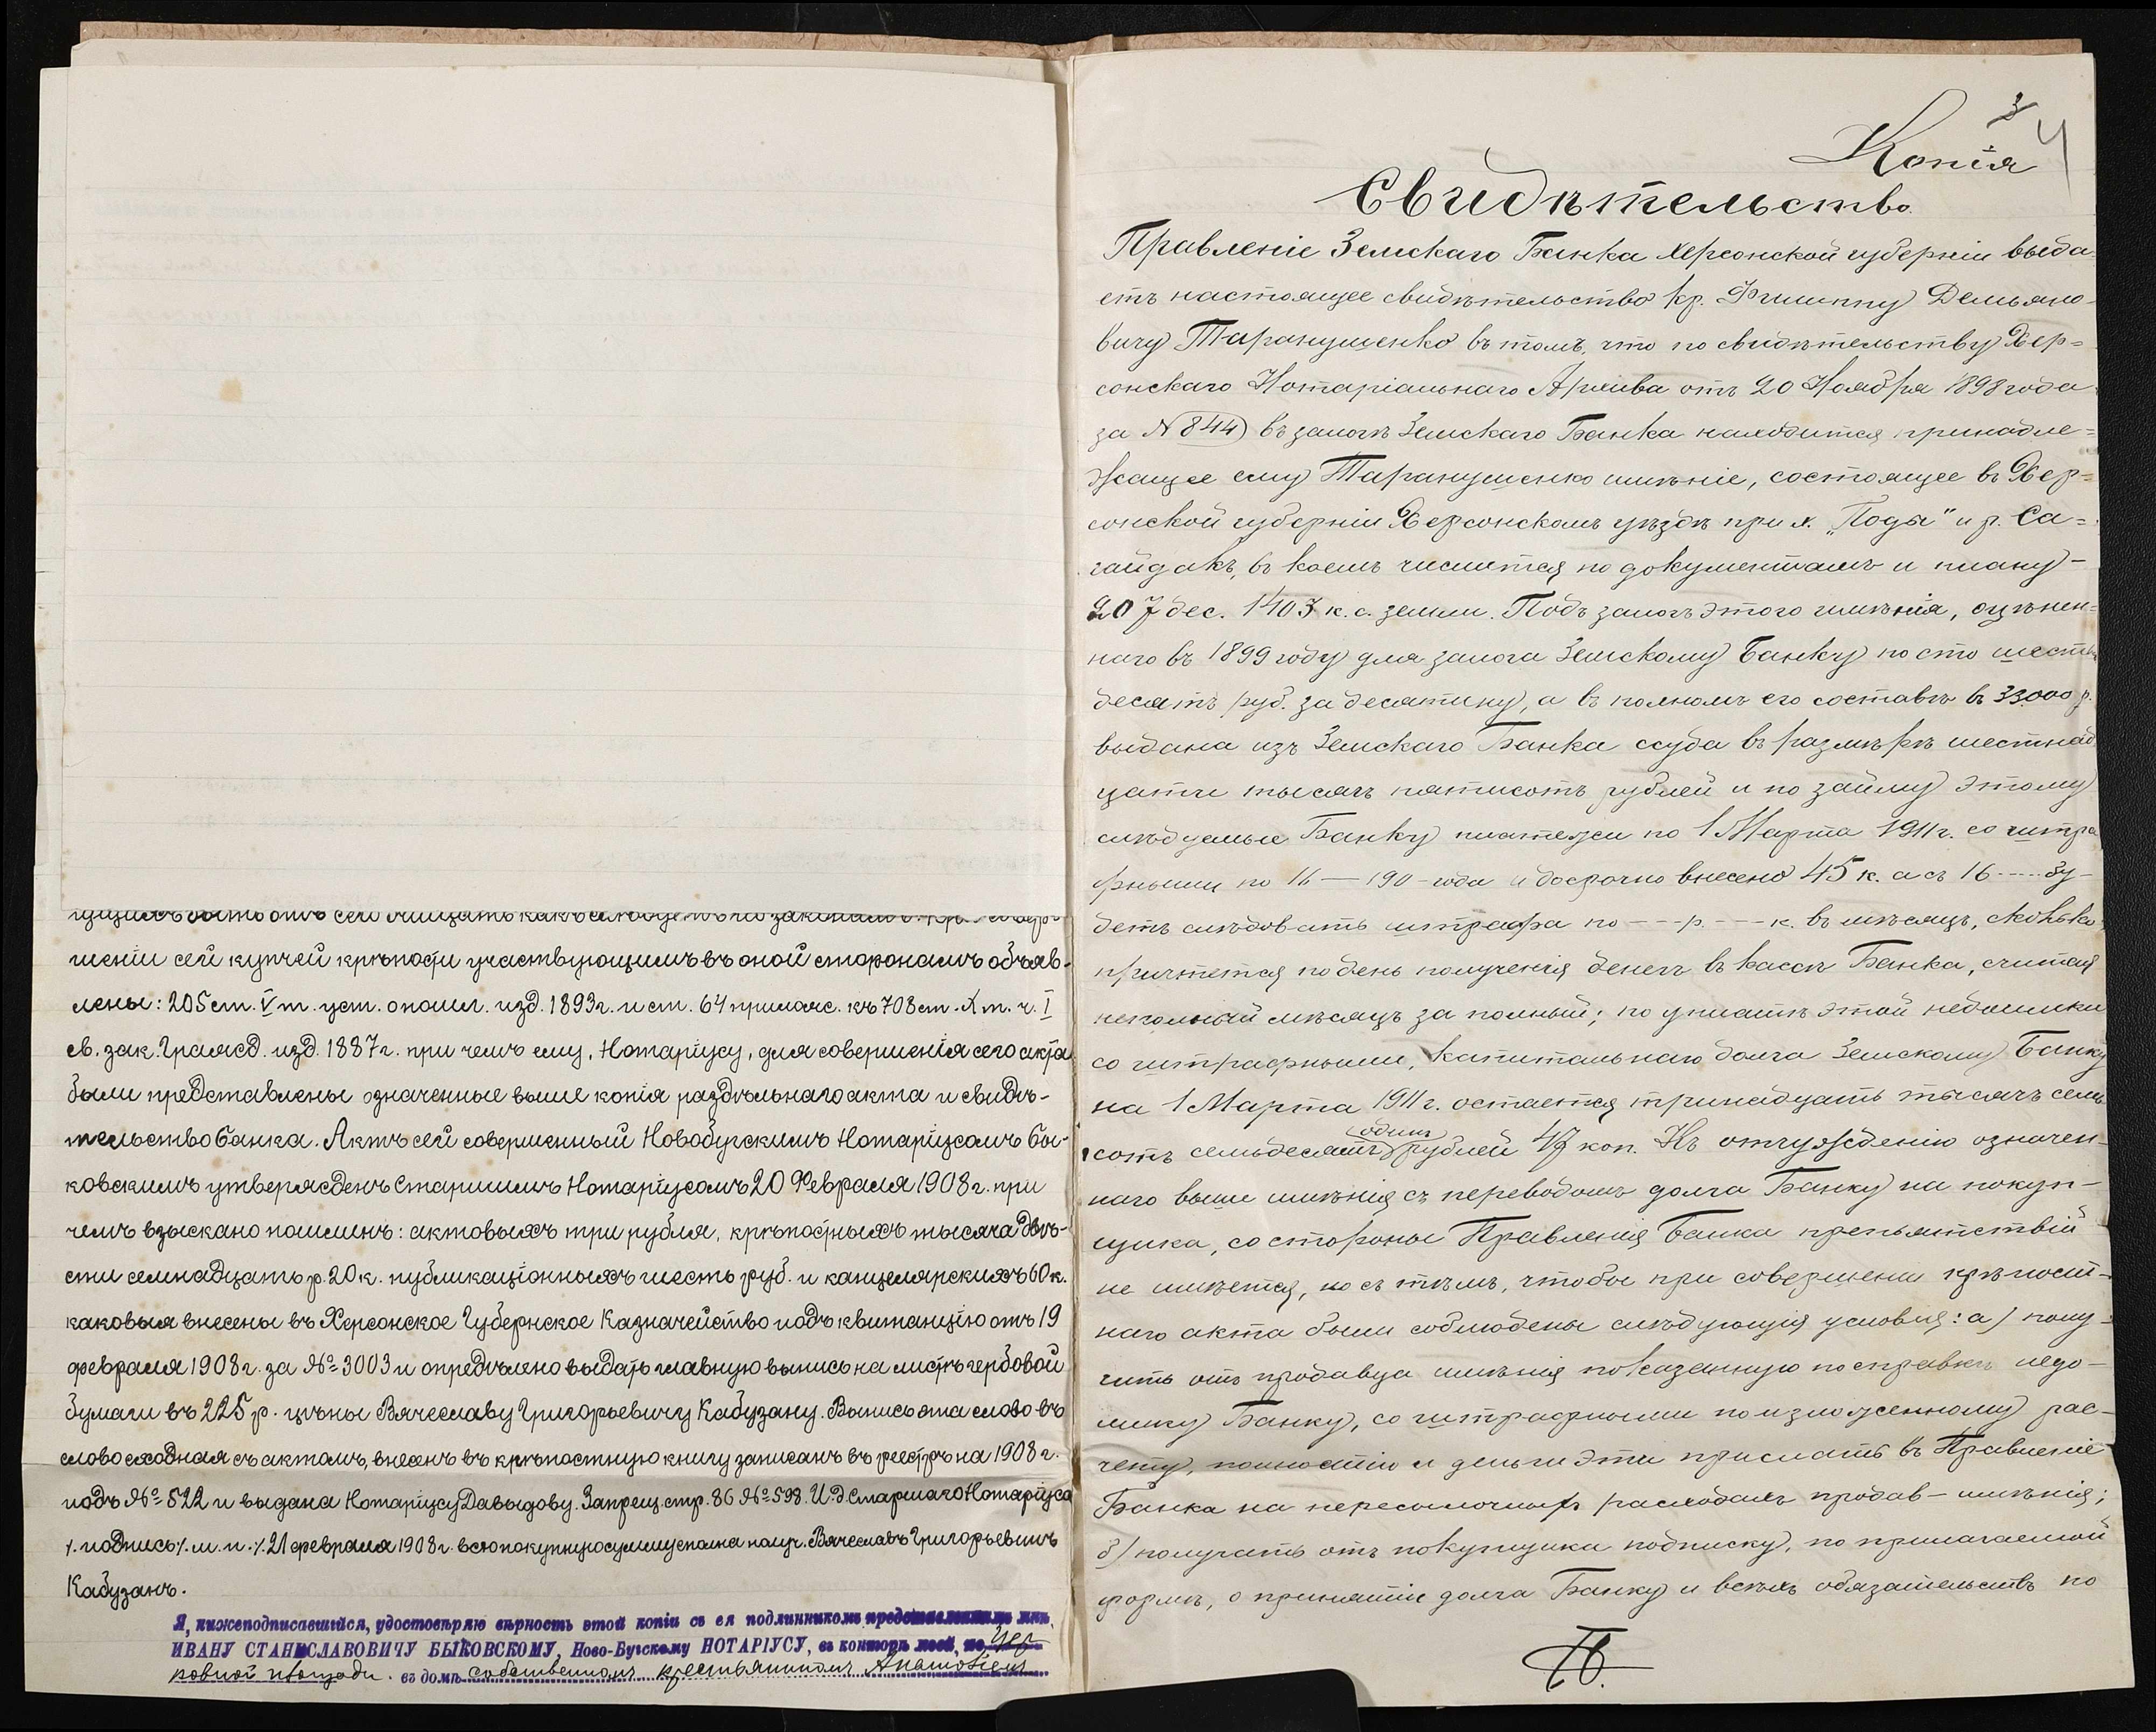 шеніи сей купчей крѣпости участвующимъ въ оной сторонамъ объяв-
лены: 205 ст. V т. уст. о пошл. изд. 1893 г. и ст. 64 прилож. къ 708 ст. X т. ч. I
св. зак. Гражд. изд. 1887 г. при чемъ ему, Нотаріусу, для совершенія сего акта
были представлены означенные выше копія раздѣльнаго акта и свидѣ-
тельство банка. Актъ сей совершенный Новобугскимъ Нотаріусомъ Бы-
ковскимъ утвержденъ Старшимъ Нотаріусомъ 20 Февраля 1908 г. при
чемъ взыскано пошлинъ: актовыхъ три рубля, крѣпостныхъ тысяча двѣ-
сти семнадцать р. 20 к. публикаціонныхъ шесть руб. и канцелярскихъ 60 к.
каковыя внесены въ Херсонское Губернское Казначейство подъ квитанцію отъ 19
февраля 1908 г. за № 3003 и опредѣлено выдать главную выпись на листѣ гербовой
бумаги въ 225 р. цѣны Вячеславу Григорьевичу Кабузану. Выпись эта слово въ
слово сходная съ актомъ, внесенъ въ крѣпостную книгу записанъ въ реестръ на 1908 г.
подъ № 522 и выдана Нотаріусу Давыдову. Запрещ. стр. 86 № 598. И.д. Старшаго Нотаріуса
/. подпись /. м. п. /. 21 февраля 1908 г. всю покупную сумму сполна получ. Вячеславъ Григорьевичъ
Кабузанъ.
Я, нижеподписавшійся, удостовѣряю вѣрность этой копіи съ ея подлинникомъ представленнымъ мнѣ,
ИВАНУ СТАНИСЛАВОВИЧУ БЫКОВСКОМУ, Ново-Бугскому НОТАРІУСУ, въ конторѣ моей, по Цер
ковной площади въ домѣ собственномъ крестьяниномъ
3
4
Копія
Свидѣтельство.
Правленіе Земскаго Банка Херсонской губерніи выда-
етъ настоящее свидѣтельство кр. Филиппу Демьяно-
вичу Таранушенко въ томъ, что по свидѣтельству Хер=
сонскаго Нотаріальнаго Архива отъ 20 Ноября 1898 года
за N 844 въ залогѣ Земскаго Банка находится принадле=
жащее ему Таранушенко имѣніе, состоящее въ Хер=
сонской губерніи Херсонскомъ уѣздѣ при х. „Поды" и р. Са=
гайдакъ, въ коемъ числится по документамъ и плану -
207 дес. 1403 к. с. земли. Подъ залогъ этого имѣнія, оцѣнен=
наго въ 1899 году для залога Земскому Банку по сто шесть
десятъ руб. за десятину, а въ полномъ его составѣ въ 33.000 р.
выдана изъ Земскаго Банка ссуда въ размѣрѣ шестнад
цати тысячъ пятисотъ рублей и по займу этому
слѣдуемые Банку платежи по 1 Марта 1911 г. со штра
фными по 16 — 190 - года и досрочно внесено 45 к. а съ 16 ---- бу-
детъ слѣдовать штрафа по --- р. --- к. въ мѣсяцъ, сколько
причтется по день полученія денегъ въ кассѣ Банка, считая
неполный мѣсяцъ за полный; по уплатѣ этой недоимки
со штрафными, капитальнаго долга Земскому Банку
на 1 Марта 1911 г. остается тринадцать тысячъ семь
сотъ семьдесятъ одинъ рублей 47 коп. Къ отчужденію означен-
наго выше имѣнія съ переводомъ долга Банку на покуп-
щика, со стороны Правленія Банка препятствій
не имѣется, но съ тѣмъ, чтобы при совершеніи крѣпост-
наго акта были соблюдены слѣдующія условія: а) полу-
чить отъ продавца имѣнія показанную по справкѣ недо-
имку Банку, со штрафными по изложенному рас-
чету, полностію и деньги эти прислать въ Правленіе
Банка на пересылочныхъ расходахъ продав- имѣнія;
б) получать отъ покупщика подписку, по прилагаемой
формѣ, о принятіи долга Банку и всѣхъ обязательствъ по